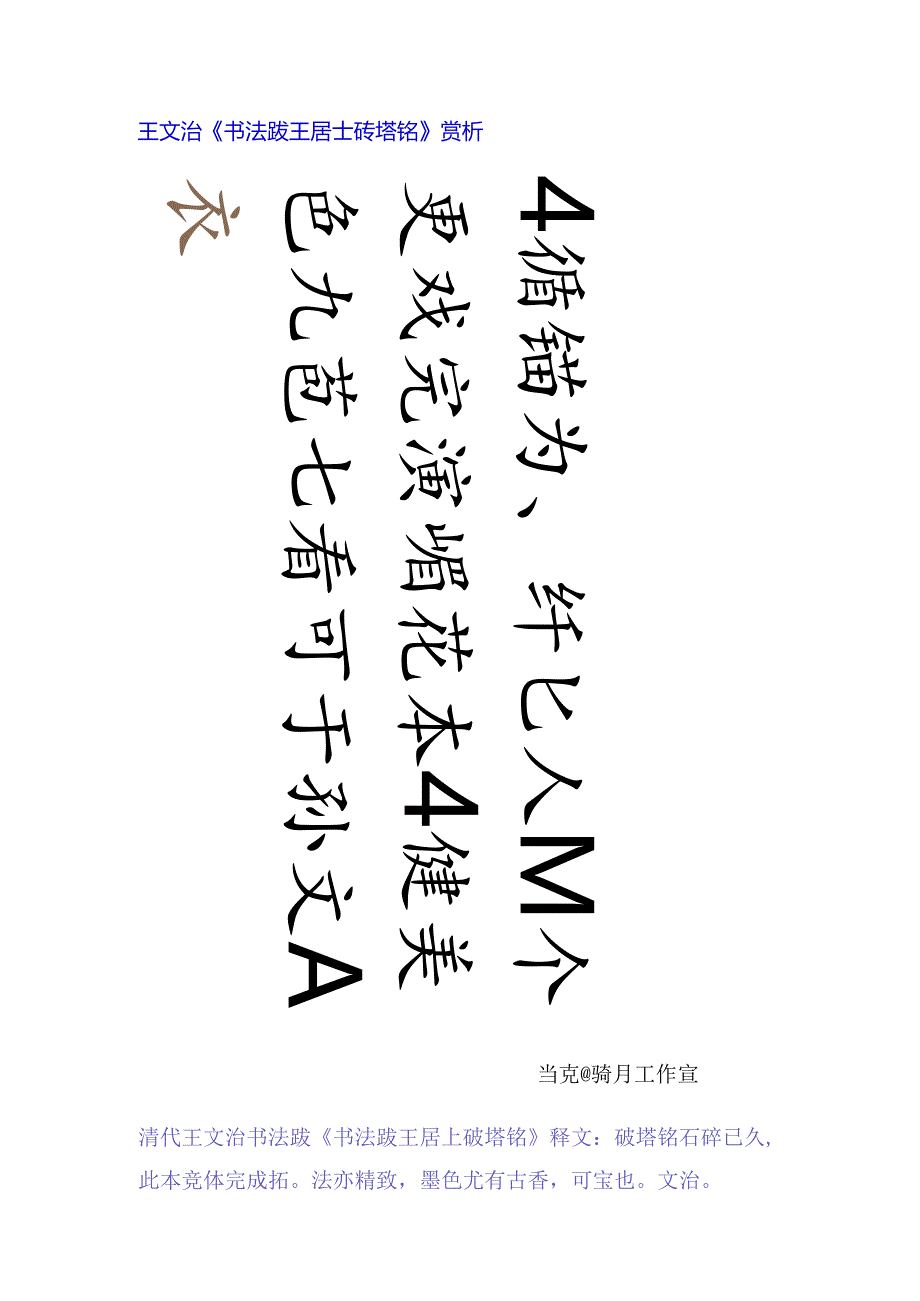 王文治《书法跋王居士砖塔铭》赏析
4循锚为、纤匕人M个
更戏完演嵋花本4健美
色九苞七看可于孙文A
衣
当克@骑月工作宣
清代王文治书法跋《书法跋王居上破塔铭》释文：破塔铭石碎己久,
此本竞体完成拓。法亦精致，墨色尤有古香，可宝也。文治。